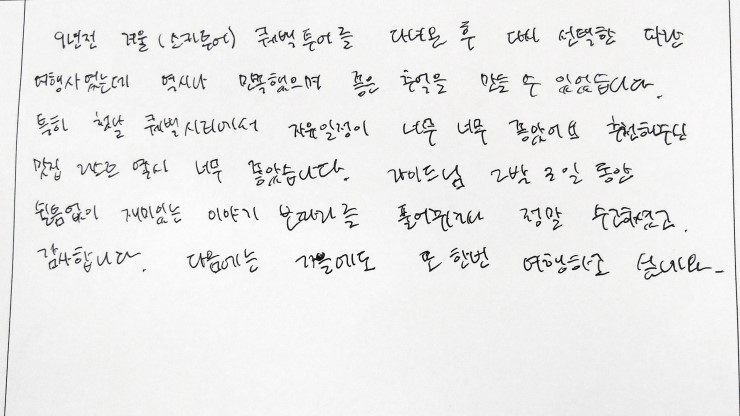 9년전 겨울 (소지투어) 퀘백 투어를 다녀온 후 다시 선택한 파란
여행사였는데 역시나 만족했으며 좋은 추억을 만들 수 있었습니다.
특히 첫날 퀘벡시티에서 자유일정이 너무 너무 좋았어요 추천해주신
맛집 리스트 역시 너무 좋았습니다. 가이드님 2박 3일 동안
쉴틈없이 재미있는 이야기 보따리를 풀어주셔서 정말 수고하셨고
감사합니다. 다음에는 가을에도 또 한번 여행하고 싶네요